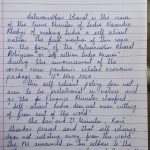 Aatmanirbhar Bharat is the vision
of the Prime Minister of India Narendra
Modi of making India a self reliant
nation. The first mention of this came
in the form of the Aatmanirbhar Bharat
Abhiyan or self reliant India mission
during the announcement of the
corona virus pandemic related economic
package on 12th May 2020
This self reliant policy does not
aim to be protectionist in nature and
as the Finance Minister clarified
self reliant India does not mean cutting
off from rest of the world
The law and IT Minister Ravi
Shankar Prasad said that self reliance
does not isolating away from the world